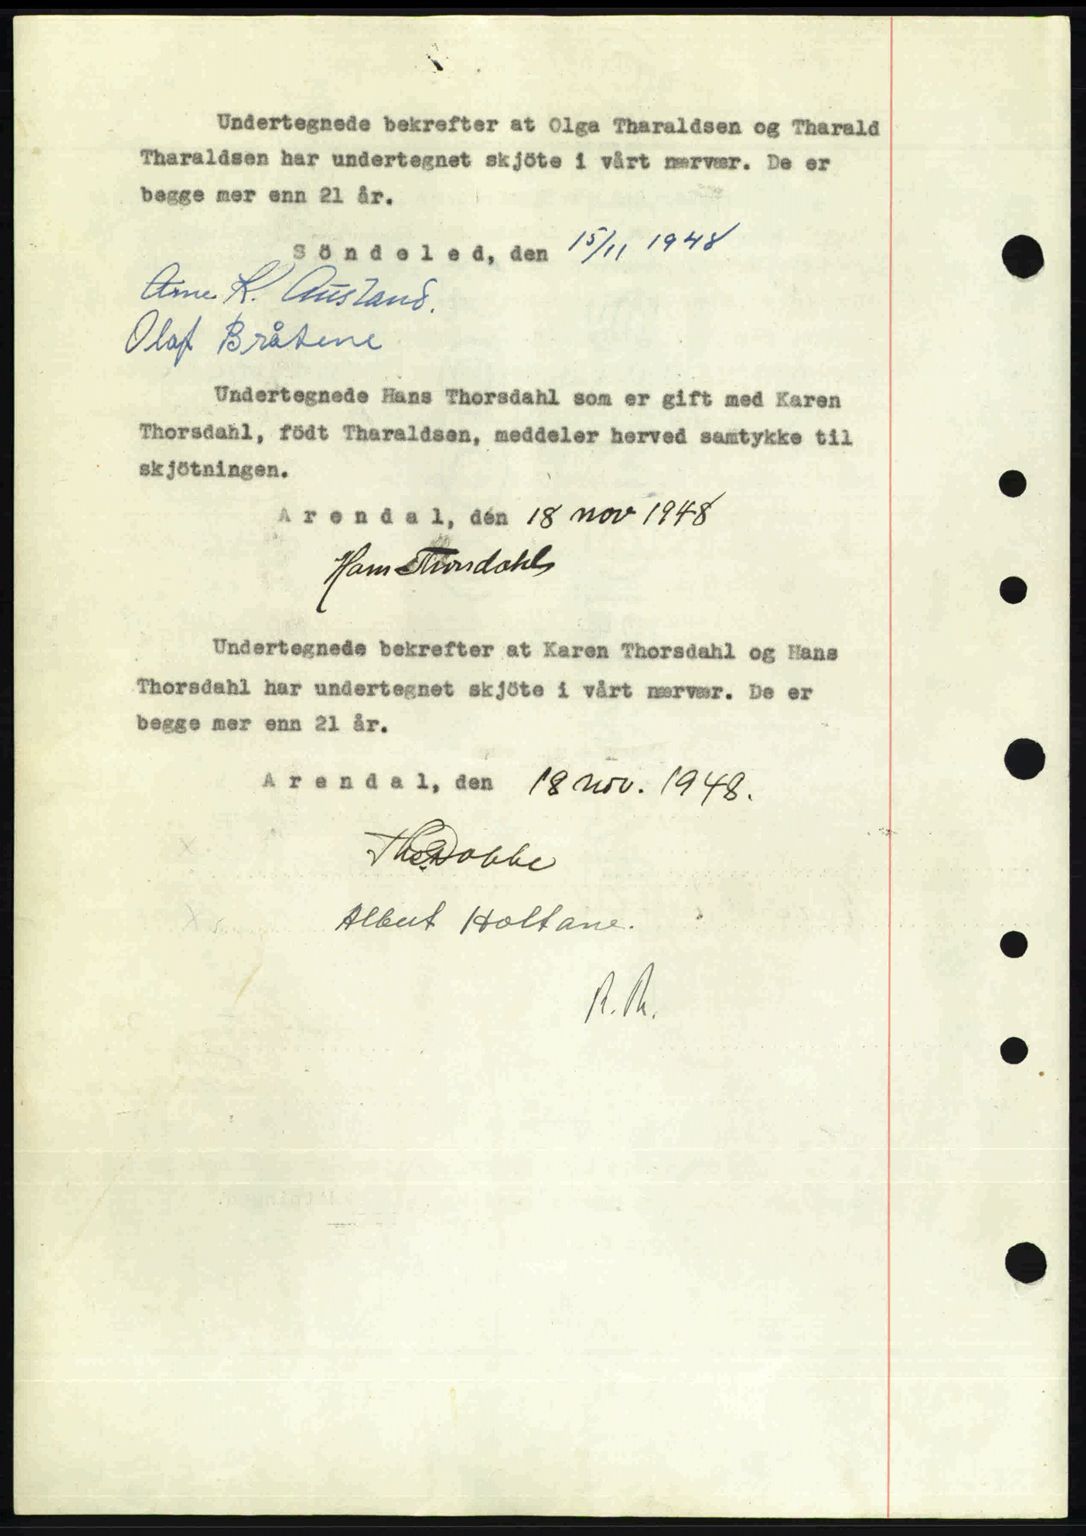 Undertegnede bekrefter at Olga Tharaldsen og Tharald
Tharaldsen har undertegnet skjöte i vårt nærvær. De er
begge mer enn 21 år.
S ö n d e l e d, den 15/11 1948
Arne K. Ausland.
Olaf Bråtene
Undertegnede Hans Thorsdahl som er gift med Karen
Thorsdahl, födt Tharaldsen, meddeler herved samtykke til
skjötningen.
A r e n d a l, den 18 nov 1948
Hans Thorsdahl
Undertegnede bekrefter at Karen Thorsdahl og Hans
Thorsdahl har undertegnet skjöte i vårt nærvær. De er
begge mer enn 21 år.
A r e n d a l, den 18 nov. 1948.
Albert Holtane.